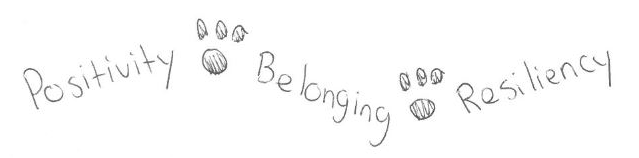 Positivity Belonging Resiliency